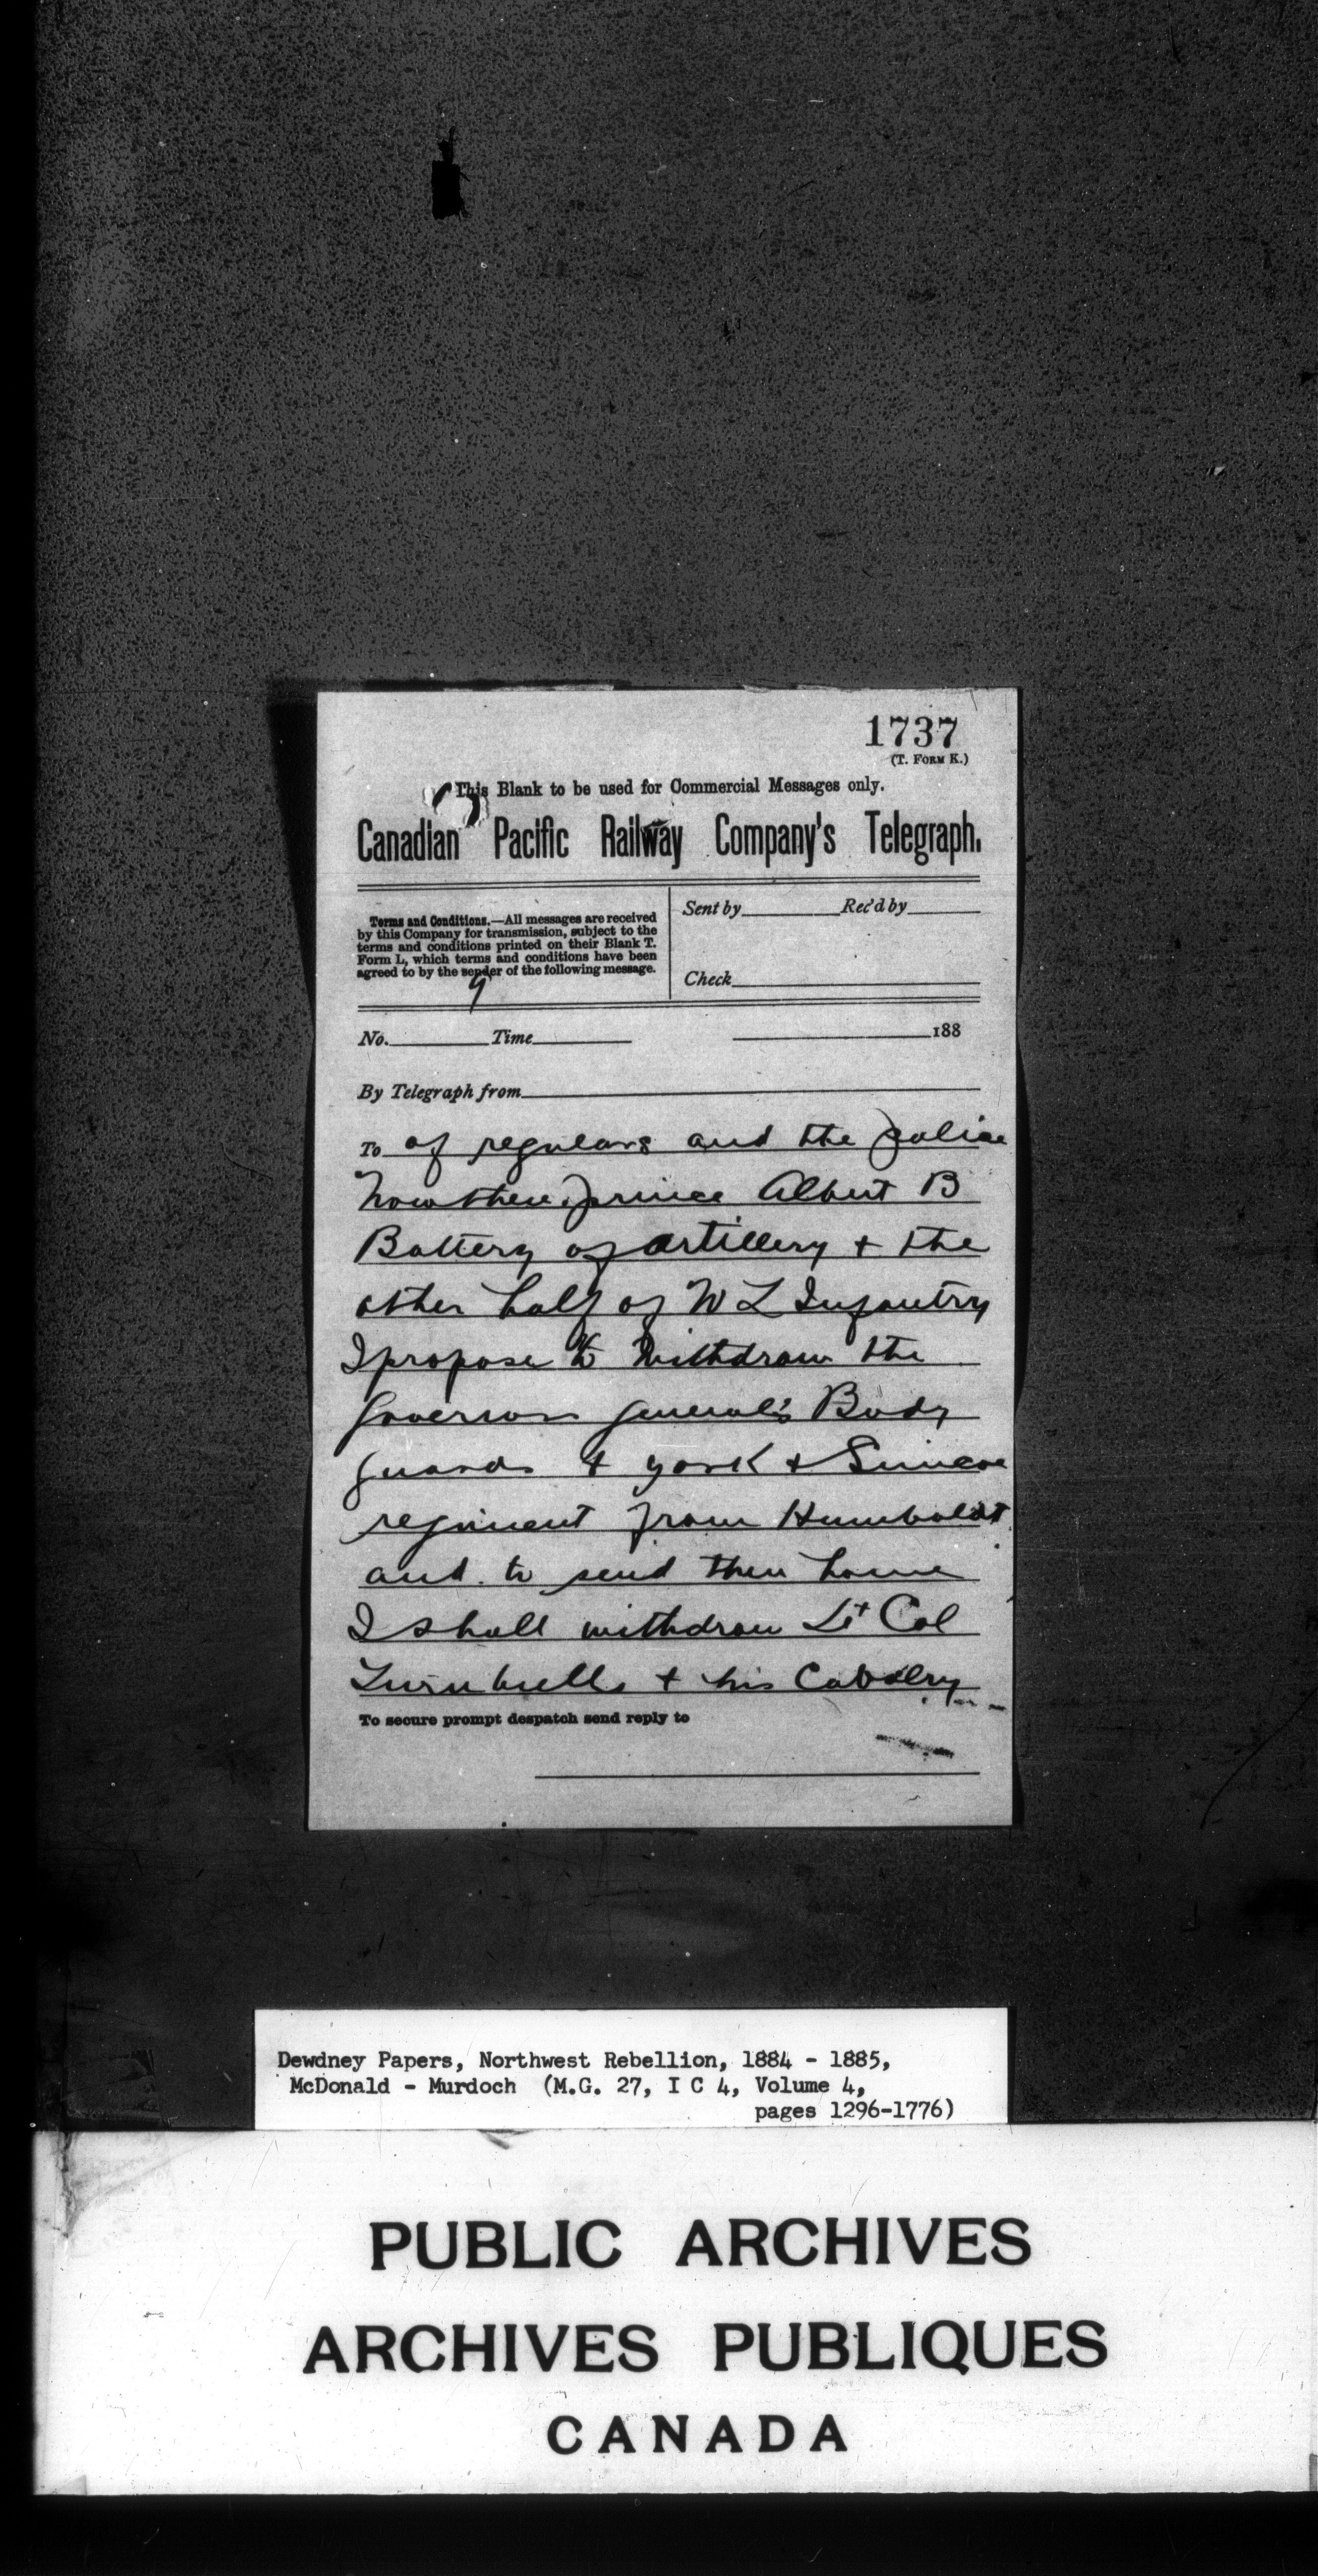 1737
(T. FORM K.)
This Blank to be used for Commercial Messages only.
Canadian Pacific Railway Company's Telegraph.
Terms and Conditions.—All messages are received
by this Company for transmission, subject to the
terms and conditions printed on their Blank T.
Form L, which terms and conditions have been
agreed to by the sender of the following message.
Sent by Rec'd by
Check
9
No. Time 188
By Telegraph from
To of regulars and the police
now there. prince Albert B
Battery of artillery + the
other half of W L Infantry
I propose to withdraw the
Governor general's Body
guards + york + Simcoe
regiment from Humboldt
and to send them home
I shall withdraw Lt Col
Turnbulls + his Cavalry
To secure prompt despatch send reply to
Dewdney Papers, Northwest Rebellion, 1884 - 1885,
McDonald - Murdoch (M.G. 27, I C 4, Volume 4,
pages 1296-1776)
PUBLIC ARCHIVES
ARCHIVES PUBLIQUES
CANADA